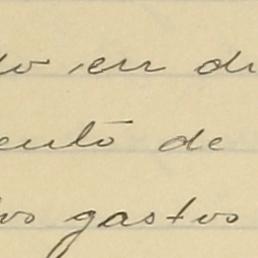 do en di
ento de
os gastos